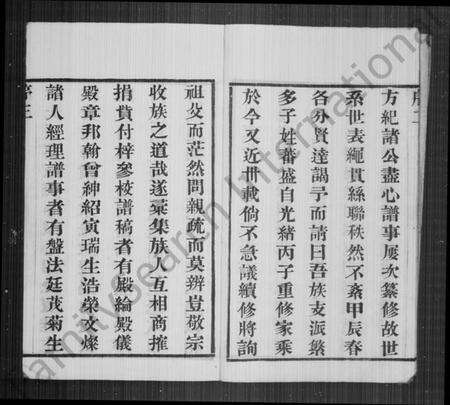 序二
方紀諸公盡心譜事屢次纂修故世
系世表繩貫絲聯秩然不紊甲辰春
各分賢達謁予而請曰吾族支派繁
多子姓蕃盛自光緒丙子重修家乘
於今又近卅載倘不急議續修將詢
祖父而茫然問親疏而莫辨豈敬宗
收族之道哉遂彙集族人互相商搉
捐貲付梓參校譜稿者有殿綸殿儀
殿章邦翰曾紳紹寅瑞生浩榮文燦
諸人經理譜事者有盤法廷茂菊生
序三
amilySearch International